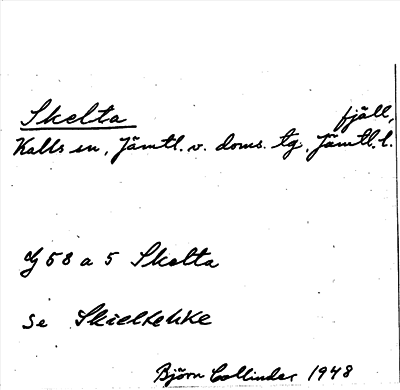 Skelta fjäll,
Kalls sn, Jämtl. v. doms. tg, Jämtl. l.
58 a 5 Skelta
se Skieltehke
Björn Collinder 1948